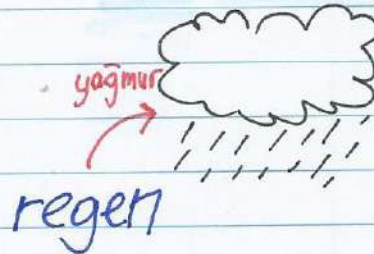 yağmur
regen